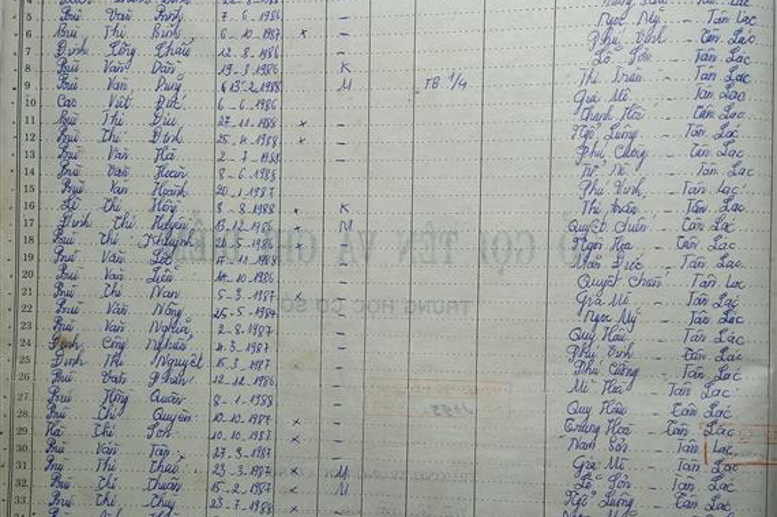 Bùi Văn Bình 7-6-1986 - Ngọc Mỹ - Tân Lạc
6 Bùi Thị Bình 6-10-1987 x - Phú Vinh - Tân Lạc
7 Đinh Công Chấu 12-8-1986 - Lỗ Sơn - Tân Lạc
8 Bùi Văn Dần 19-3-1986 K Thị Trấn - Tân Lạc
9 Bùi Văn Dung M TB 1/4 Gia Mô - Tân Lạc
10 Cao Việt Đức 6-6-1986 Thanh Hối - Tân Lạc
11 Bùi Thị Dịu 27-10-1988 x - Ngổ Luông - Tân Lạc
12 Bùi Thị Định 25-4-1988 x - Phú Cường - Tân Lạc
13 Bùi Văn Hà 2-7-1988 - Tử Nê - Tân Lạc
14 Bùi Văn Hoan 8-6-1988 Phú Vinh - Tân Lạc
15 Bùi Văn Hoành 20-1-1987 Thị trấn - Tân Lạc
16 Lê Thị Hồng 8-8-1988 x K Quyết Chiến - Tân Lạc
17 Đinh Thị Huyện 13-12-1986 M Ngòi Hoa - Tân Lạc
18 Bùi Thị Khuỳnh 20-5-1986 x - Mãn Đức - Tân Lạc
19 Bùi Văn 17-11-1988 - Quyết Chiến - Tân Lạc
20 Bùi Văn Liễu 14-10-1986 - Gia Mô - Tân Lạc
21 Bùi Thị Nan 5-3-1987 x - Ngọc Mỹ - Tân Lạc
22 Bùi Văn Nông 25-5-1987 -
23 Bùi Văn Nghĩa 2-8-1987 - Quy Hậu - Tân Lạc
24 Đinh Công 4-3-1987 - Phú Vinh - Tân Lạc
25 Đinh Thị Nguyệt 15-3-1987 x - Phú Cường - Tân Lạc
26 Bùi Văn Phấn 12-12-1986 - Mỹ Hoà - Tân Lạc
27 Bùi Hồng Quân 8-1-1988 - Quy Hậu - Tân Lạc
28 Bùi Thị Quyên 10-10-1987 x - Trung Hoà - Tân Lạc
29 Hà Thị Sơn 10-10-1987 x - Nam Sơn - Tân Lạc
30 Bùi Văn Tân 27-3-1987 - Gia Mô - Tân Lạc
31 Bùi Thị Thảo 23-3-1987 x M Lỗ Sơn - Tân Lạc
32 Bùi Thị Thuần 15-2-1987 x M Ngổ Luông - Tân Lạc
33 Bùi Thị Thuý 23-7-1988 x -